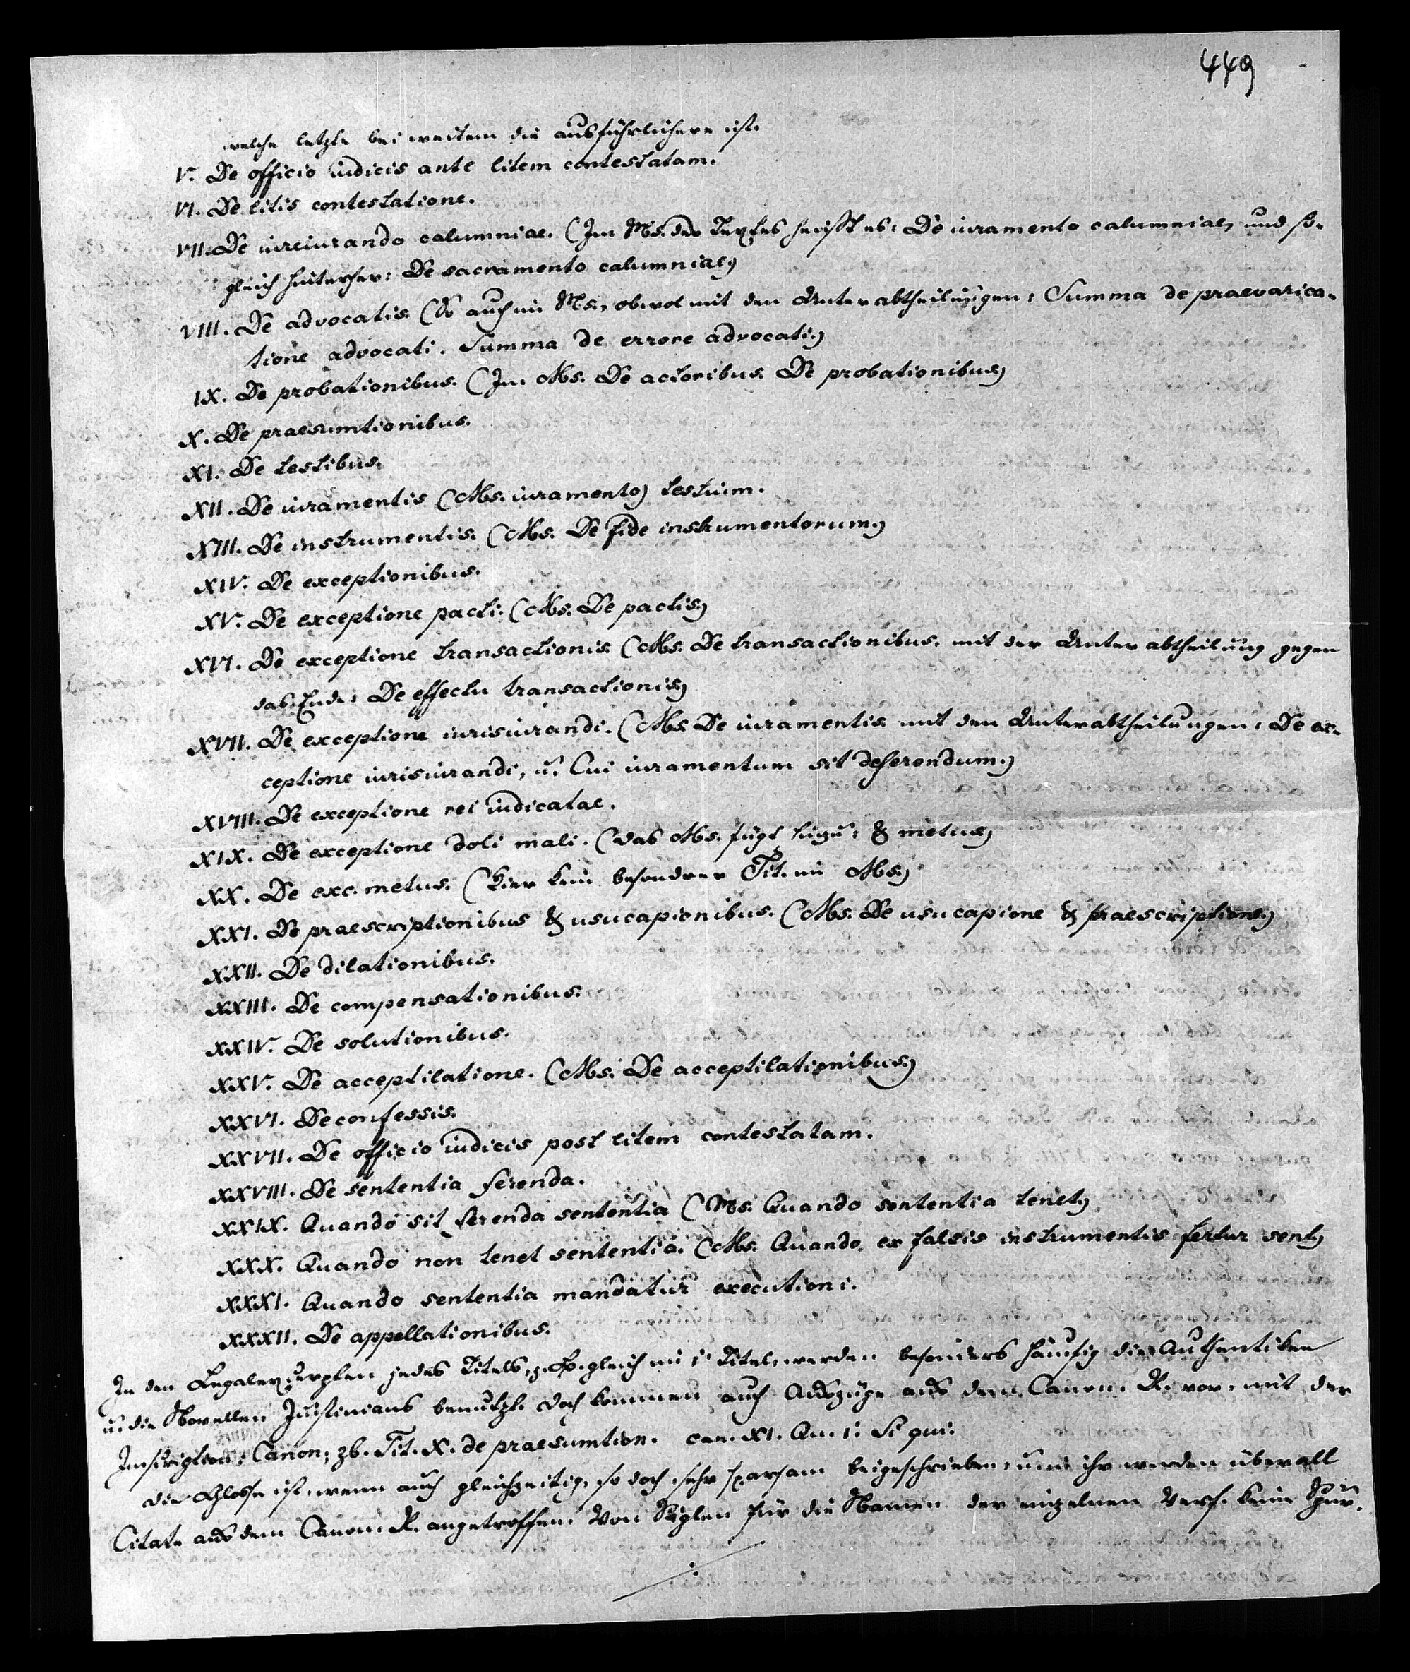 449
welche letzte bei weitem die ausführlichere ist.
V. De officio iudicis ante litem contestatam.
VI. De litis contestatione.
VII. De iureiurando calumniae. (Im Ms. des Textes heisst es: De iuramento calumniae, und so-
gleich hinterher: De sacramento calumniae)
VIII. De advocatis (So auch im Ms., obwol mit den Unterabtheilungen: Summa de praevarica-
tione advocati. Summa de errore advocati.)
IX. De probationibus. (Im Ms. De actoribus. De probationibus)
X. De praesumtionibus.
XI. De testibus.
XII. De iuramentis (Ms. iuramento) testium.
XIII. De instrumentis. (Ms. De fide instrumentorum.)
XIV. De exceptionibus.
XV. De exceptione pacti. (Ms. De pactis)
XVI. De exceptione transactionis (Ms. De transactionibus. mit der Unterabtheilung gegen
das Ende: De effectu transactionis)
XVII. De exceptione iurisiurandi. (Ms. De iuramentis mit den Unterabtheilungen: De ex-
ceptione iurisiurandi, u. Cui iuramentum sit deferendum.)
XVIII. De exceptione rei iudicatae.
XIX. De exceptione doli mali. (das Ms. fügt hinzu: & metus)
XX. De exc. metus. (hier kein besondrer Tit. im Ms.)
XXI. De praescriptionibus & usucapionibus. (Ms. De usucapione & praescriptione.)
XXII. De dilationibus.
XXIII. De compensationibus.
XXIV. De solutionibus.
XXV. De acceptilatione. (Ms. De acceptilationibus)
XXVI. De confessis.
XXVII. De officio iudicis post litem contestatam.
XXVIII. De sententia ferenda.
XXIX. Quando sit ferenda sententia (Ms. Quando sententia tenet)
XXX. Quando non tenet sententia. (Ms. Quando ex falsis instrumentis fertur sent)
XXXI. Quando sententia mandatur executioni.
XXXII. De appellationibus.
In den jedes Titels, z. B. gleich im 1. Titel, werden besonders häufig die Authentiken
u. die Novellen Justinians benutzt. doch kommen auch Auszüge aus dem Canon. R. vor, mit der
Inscription: Canon; zb. Tit. X. de praesumtion. can. XI. Qu. 1. Si qui.
die Glosse ist, wenn auch gleichzeitig, so doch sehr sparsam beigeschrieben, u. in ihr werden überall
Citate aus dem Canon. R. angetroffen. Von Siglen für die Namen der einzelnen Verf. keine Spur.